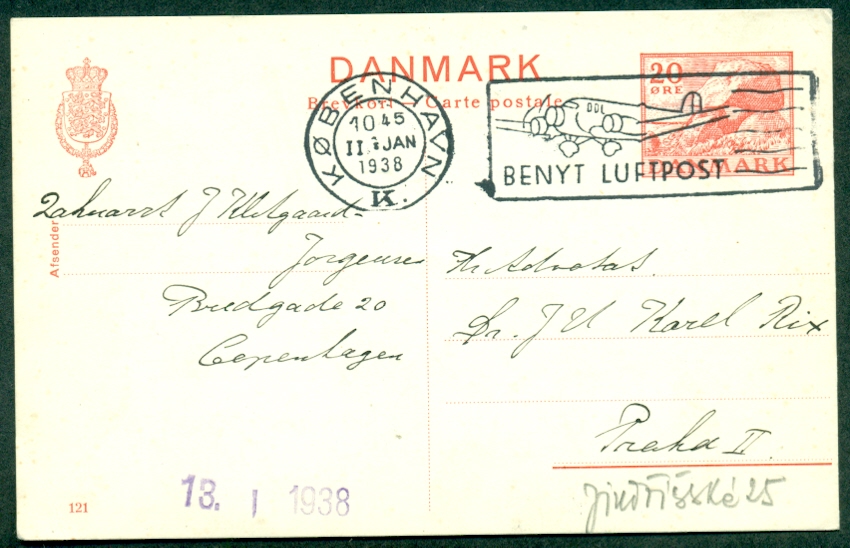 DANMARK
Brevkort - Carte postale
20
ØRE
DANMARK
KØBENHAVN
1045
11.1 JAN
1938
K.
DDL
BENYT LUFTPOST
Afsender
J Klitgaard-
Jørgensen
Bredgade 20
Copenhagen
Hr Advokat.
Dr. J U Karel Rix
Praha II
Jindřišská 25
121
13. I 1938